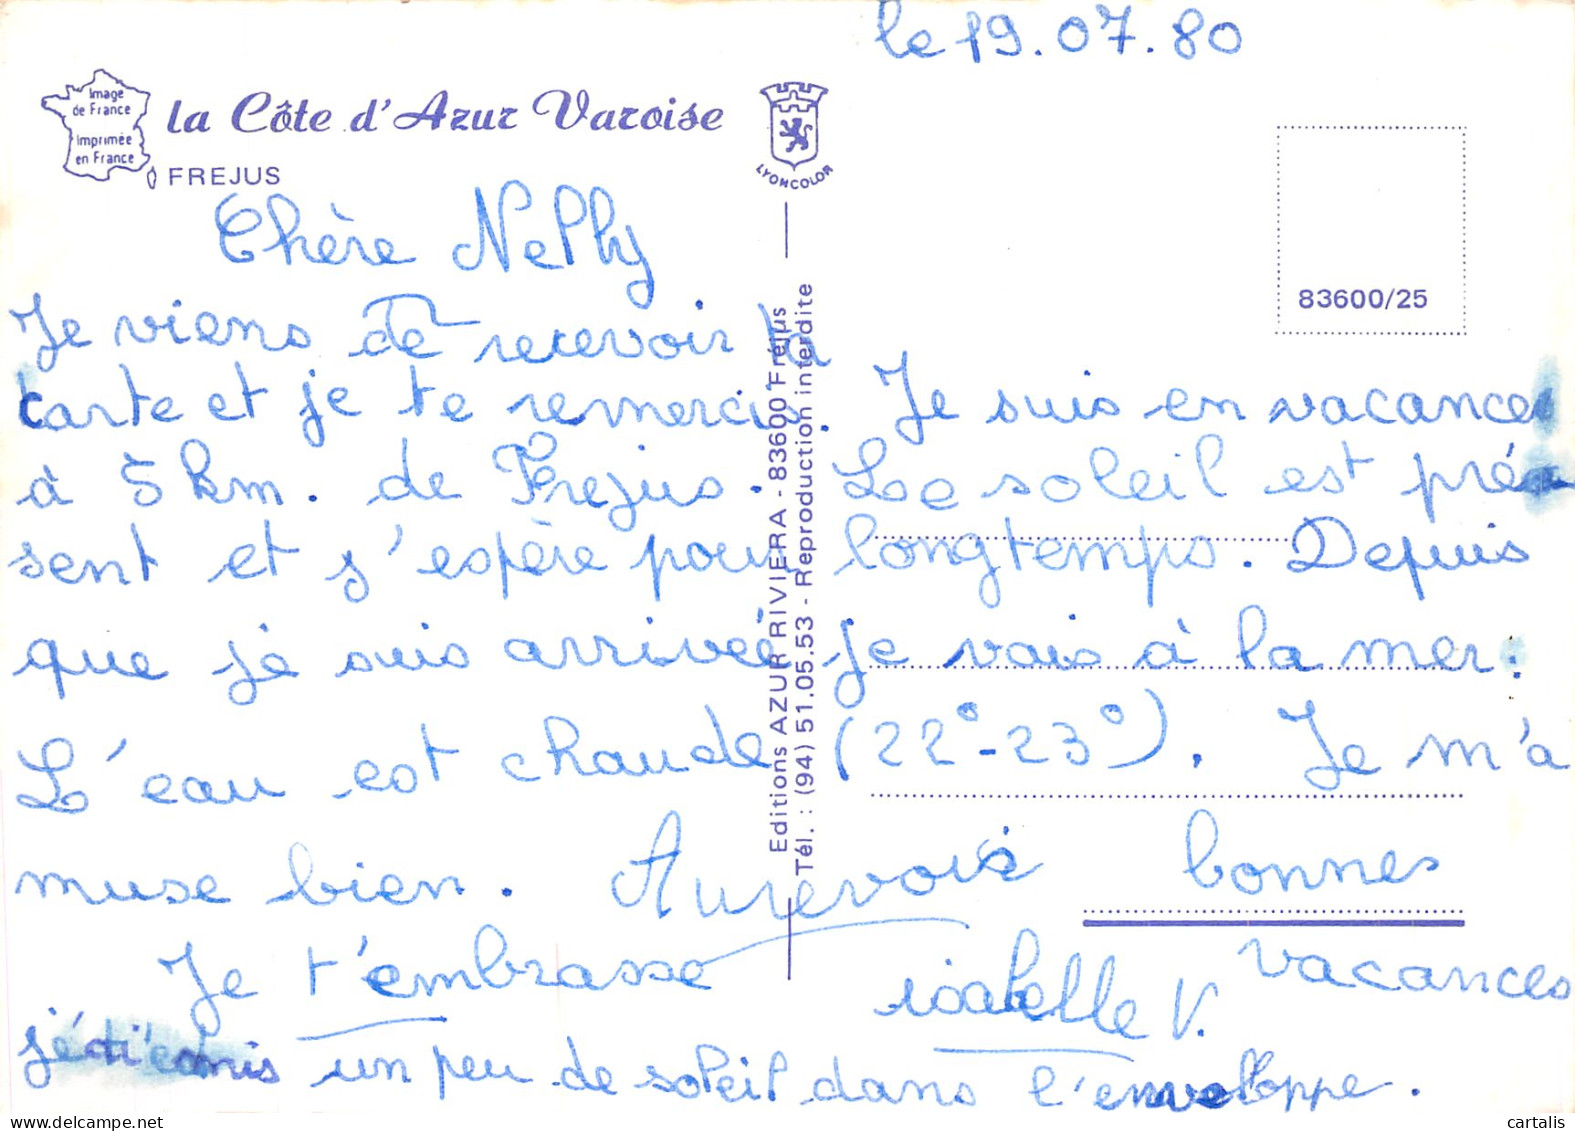 le 19.07.80
Image
de France
Imprimée
en France
la Côte d'Azur Varoise
FREJUS
LYONCOLOR
83600/25
Editions AZUR RIVIERA - 83600 Fréjus
Tél. : (94) 51.05.53 - Reproduction interdite
Chère Nelly
Je viens de recevoir ta
carte et je te remercie. Je suis en vacances
à 5 km. de Frejus. Le soleil est pré
sent et j'espère pour longtemps. Depuis
que je suis arriveé je vais à la mer.
L'eau est chaude (22°-23°). Je m'a
muse bien. Aurevoir bonnes
vacances
Je t'embrasse isabelle V.
mis un peu de soleil dans l'enveloppe.
cartalis